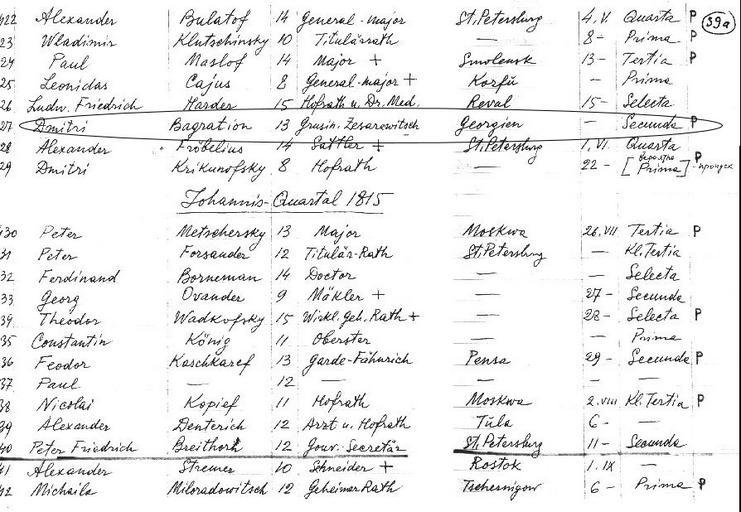 422 Alexander Bulatof 14 General-major St. Petersburg 4. V. Quarta P 39a
23 Wladimir Klutschinsky 10 Titulärrath — 8 - Prima P
24 Paul Maslof 14 Major + Smolensk 13 - Tertia P
25 Leonidas Cajus 8 General-major + Korfu — Prima
26 Ludw. Friedrich Harder 15 Hofrath u. Dr. Med. Reval 15 - Selecta
27 Dmitri Bagration 13 Grusin. Zesarewitsch Georgien — Secunda P
28 Alexander Fröbelius 14 Sattler + St. Petersburg 1. VI. Quarta
29 Dmitri Krikunofsky 8 Hofrath — 22 - [Prima] P
Johannis-Quartal 1815
430 Peter Metschersky 13 Major Moskwa 26. VII Tertia P
31 Peter Forsander 12 Titulär-Rath St. Petersburg — Kl. Tertia
32 Ferdinand Borneman 14 Doctor — — Selecta
33 Georg Ovander 9 Mäkler + — 27 - Secunda
34 Theodor Wadkofsky 15 Wirkl. Geh. Rath + — 28 - Selecta P
35 Constantin König 11 Oberster — — Prima
36 Feodor Kaschkaref 13 Garde-Fähnrich Pensa 29 - Secunda P
37 Paul — 12 — — — —
38 Nicolai Kopief 11 Hofrath Moskwa 2. VIII Kl. Tertia P
39 Alexander Denterich 12 Arzt u. Hofrath Tula 6 - —
40 Peter Friedrich Breithorh 12 Gouv. Secretär St. Petersburg 11 - Secunda
41 Alexander Stremer 10 Schneider + Rostok 1. IX —
42 Michaila Miloradowitsch 12 Geheimer Rath Tschernigow 6 - Prima P